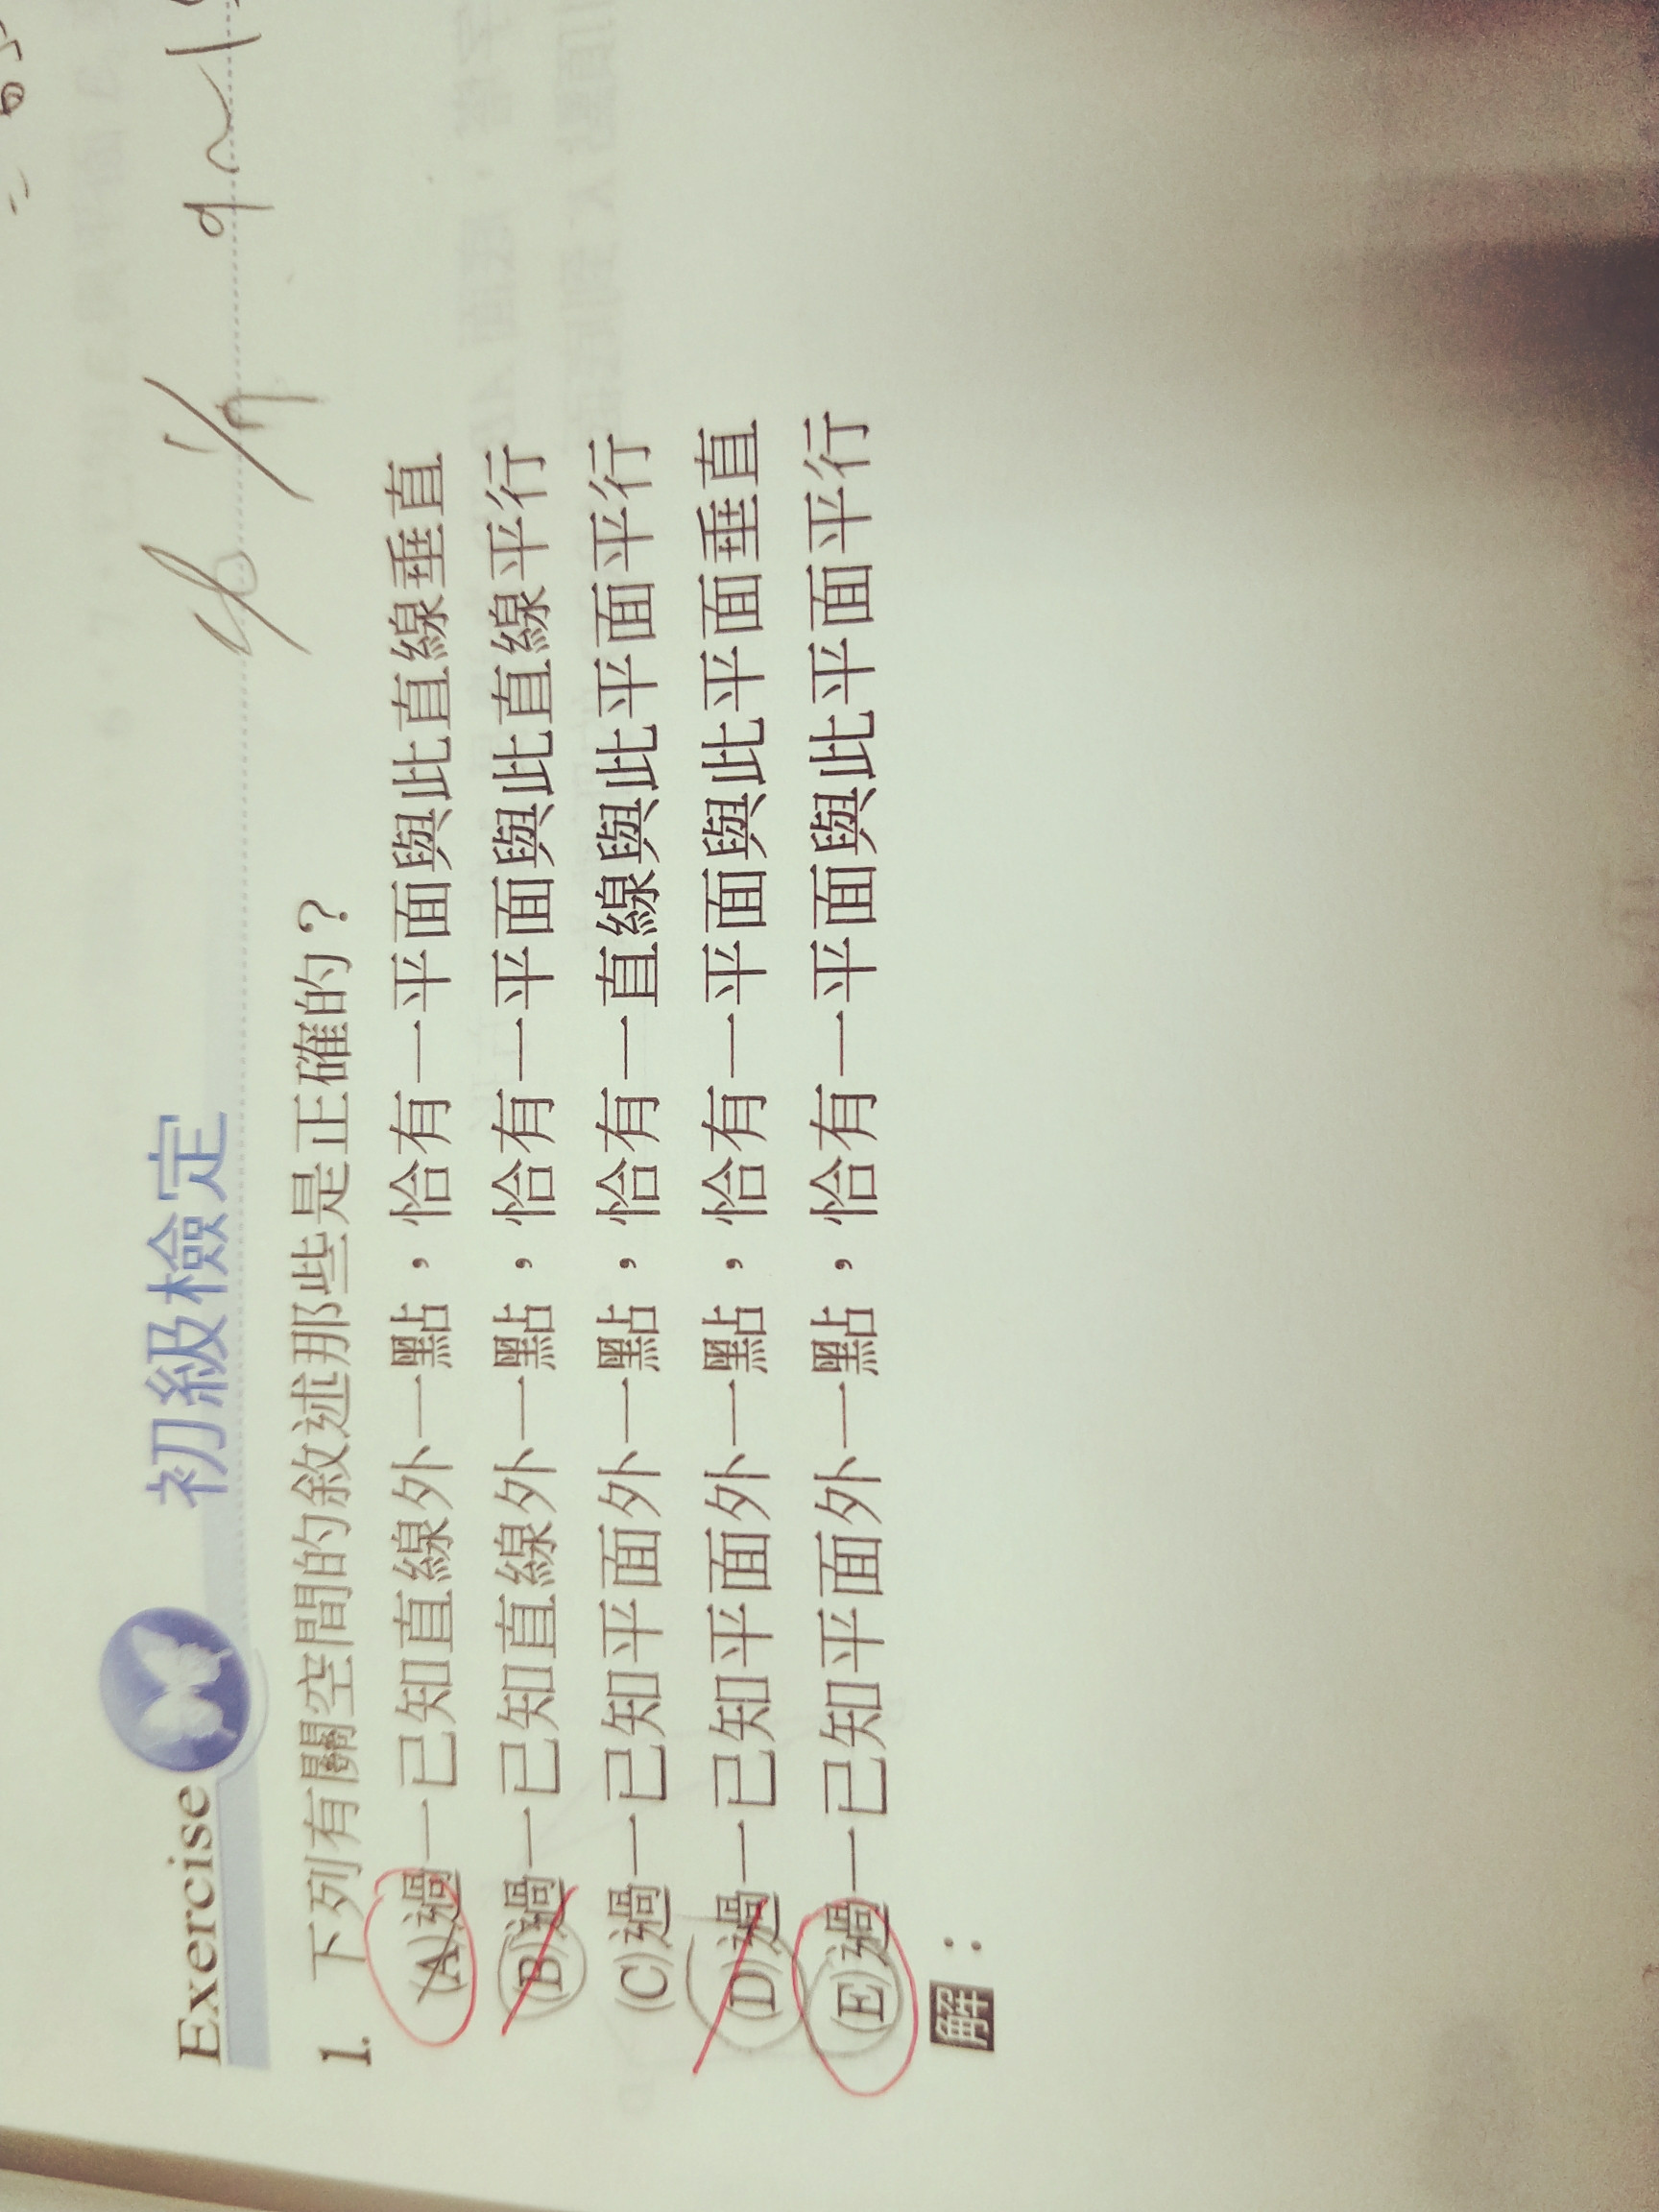 Exercise 初級檢定
1. 下列有關空間的敘述那些是正確的？
(A)過一已知直線外一點，恰有一平面與此直線垂直
(B)過一已知直線外一點，恰有一平面與此直線平行
(C)過一已知平面外一點，恰有一直線與此平面平行
(D)過一已知平面外一點，恰有一平面與此平面垂直
(E)過一已知平面外一點，恰有一平面與此平面平行
解：